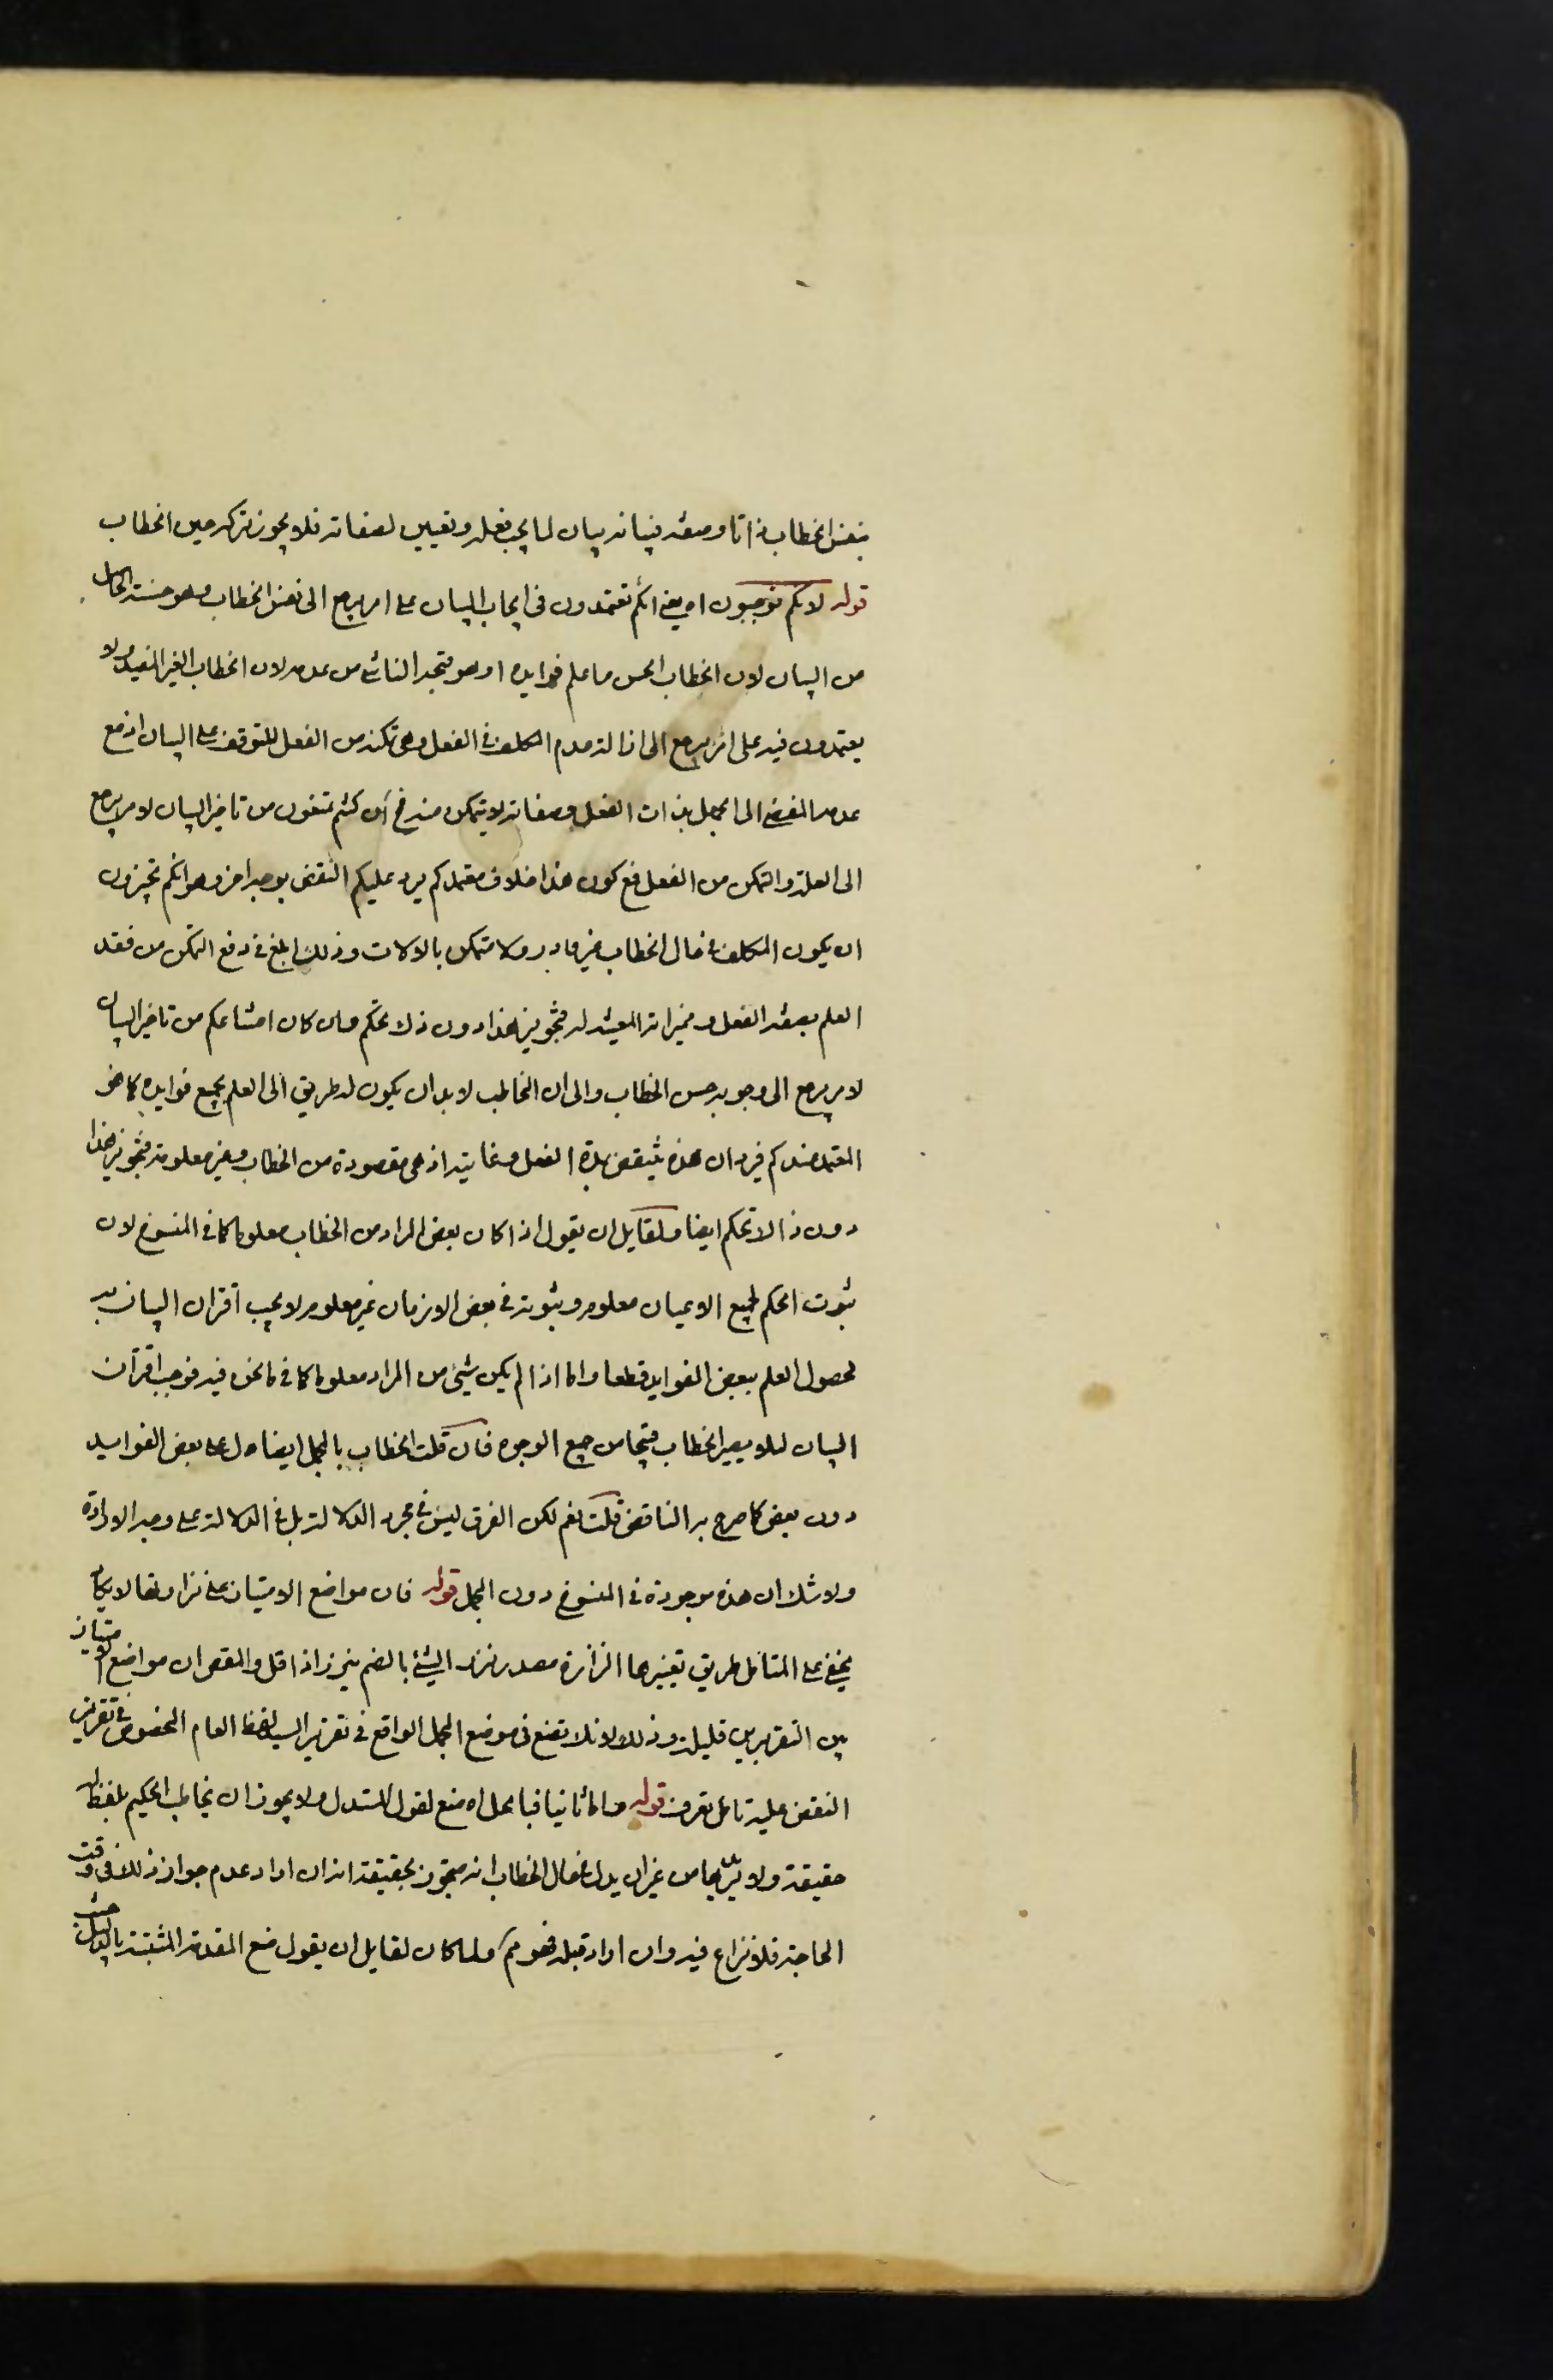 بنفس الخطاب ذاتا وصفة فبيانه بيان لما يجب فعله وتعيين لصفاته فلا يجوز تركه حين الخطاب
قوله لانكم توجبون اه يعنى انكم تعتمدون فى ايجاب البيان على امر يرجع الى نفس الخطاب وهو حسنه الحاصل
من البيان لان الخطاب الحسن ما علم فوايده او هو قبحه الناشى من عدمه لان الخطاب الغير المفيد ولا
يعتمدون فيه على امر يرجع الى ازالة عدم المكلف فى الفعل وهى تمكنه من الفعل للتوقف على البيان اذ مع
عدمه المفضى الى الجهل بذات الفعل وصفاته لا يتمكن منه فح ان كنتم تمنعون من تاخير البيان لامر يرجع
الى العلة والتمكن من الفعل فمع كون هذا خلاف معتمدكم يرد عليكم النقض بوجه اخر وهو انكم تجيزون
ان يكون المكلف فى حال الخطاب غير قادر ولا متمكن بالالات وذلك ابلغ فى رفع التمكن من فقد
العلم بصفة الفعل ومميزاته المعينة له فتجويز هذا دون ذلك تحكم وان كان امتناعكم من تاخير البيان
لامر يرجع الى وجوب حسن الخطاب والى ان المخاطب لا بد ان يكون له طريق الى العلم بجميع فوايده كما هو
المعتمد عندكم فيرد ان هذه ينتقض بمدة الفعل وغايته اذ هى مقصودة من الخطاب وغير معلومة فتجويز هذا
دون ذا لا تحكم ايضا ولقايل ان يقول اذا كان بعض المراد من الخطاب معلوما كما فى المنسوخ لان
ثبوت الحكم لجميع الاعيان معلوم وثبوته فى بعض الازمان غير معلوم لا يجب اقتران البيان به
لحصول العلم ببعض الفوايد قطعا واما اذا لم يكن شيئ من المراد معلوما كما فى ما نحن فيه فوجب اقتران
البيان لئلا يصير الخطاب قبيحا من جميع الوجوه فان قلت الخطاب بالمجمل ايضا دل على بعض الفوايد
دون بعض كما صرح به الناقض قلت نعم لكن الفرق ليس فى مجرد الدلالة بل فى الدلالة على وجه الارادة
ولا شك ان هذه موجودة فى المنسوخ دون المجمل قوله فان مواضع الامتياز على نزارتها لا يكاد
يخفى على المتامل طريق تغييرها النزارة مصدر نزر الشيئ بالضم ينزر اذا قل والمقص ان مواضع الامتياز
بين التقريرين قليلة وذلك لانك تضع فى موضع المجمل الواقع فى تقرير السيد لفظ العام المخصوص فى تقرير
النقض عليه تامل تعرف قوله واما ثانيا فبالحل اه منع لقول المستدل ولا يجوز ان يخاطب الحكيم بلفظ له
حقيقة ولا يريدها من غير ان يدل فى حال الخطاب انه متجوز بحقيقة انه ان اراد عدم جواز ذلك فى وقت
الحاجة فلا نزاع فيه وان اراد قبله فهو مم ولما كان لقايل ان يقول منع المقدمة المثبتة بالدليل حيث